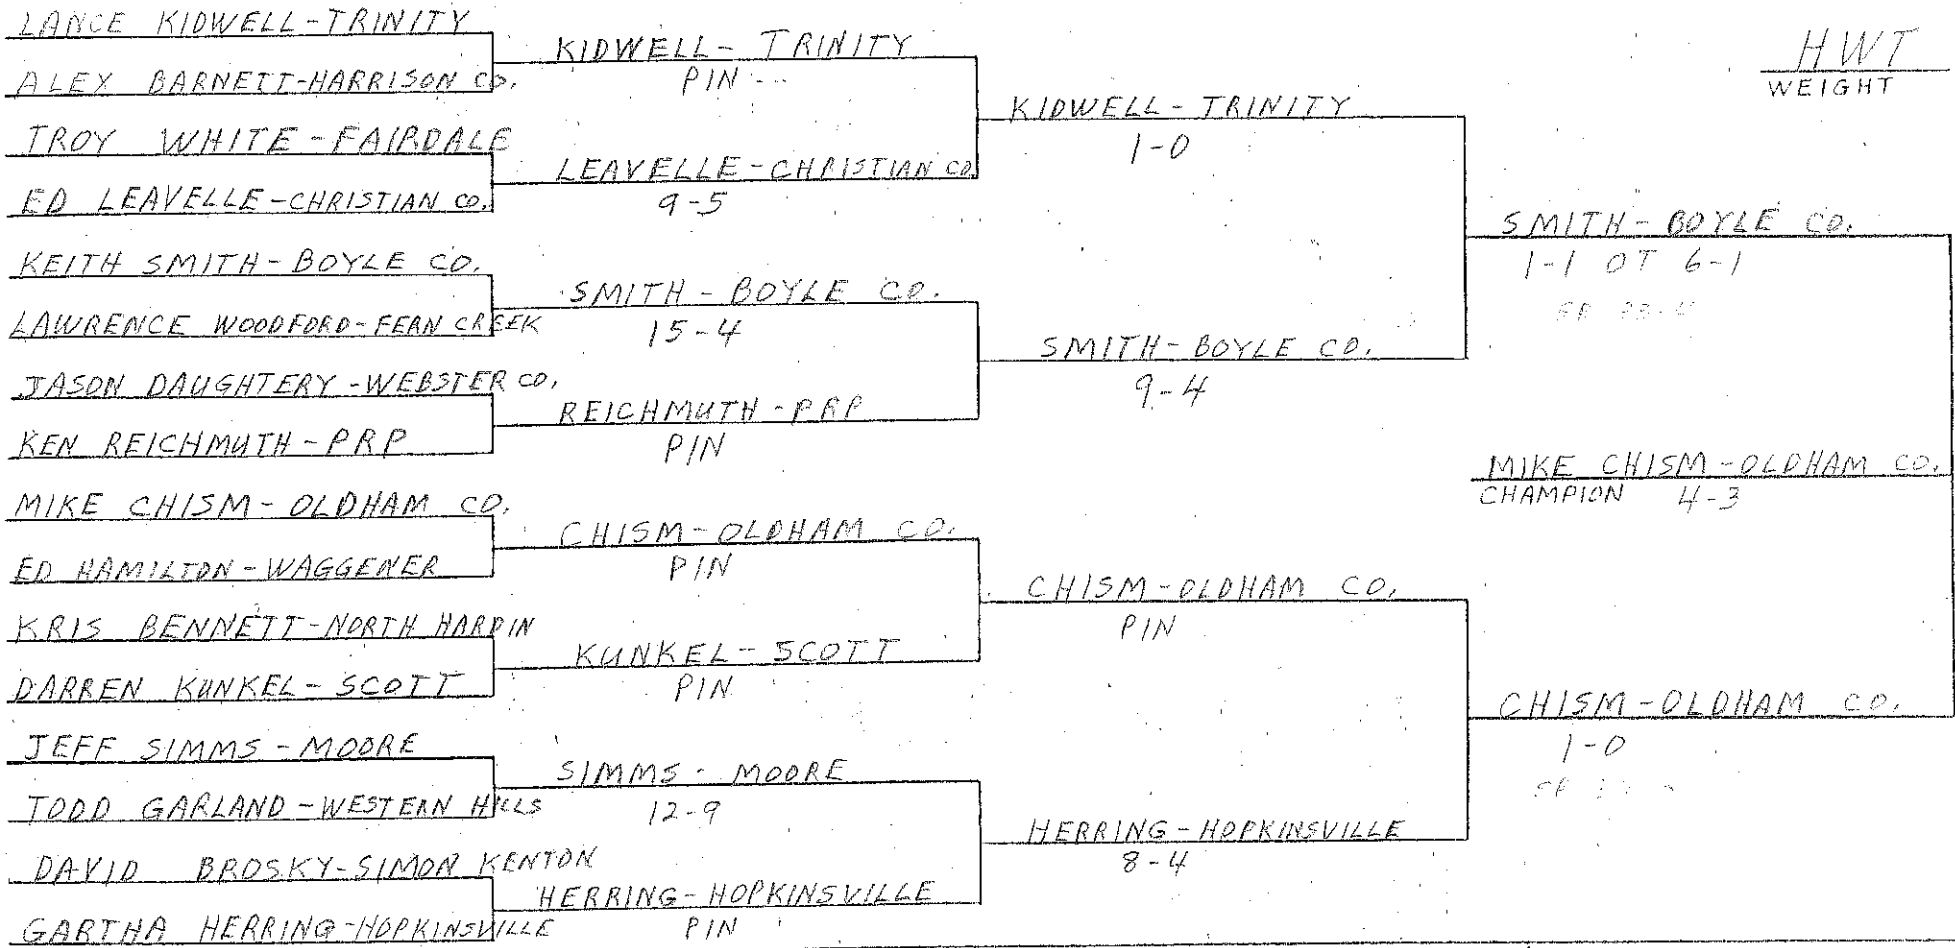 LANCE KIDWELL-TRINITY
ALEX BARNETT-HARRISON CO.
TROY WHITE-FAIRDALE
ED LEAVELLE-CHRISTIAN CO.
KEITH SMITH-BOYLE CO.
LAWRENCE WOODFORD-FERN CREEK
JASON DAUGHTERY-WEBSTER CO.
KEN REICHMUTH-PRP
MIKE CHISM-OLDHAM CO.
ED HAMILTON-WAGGENER
KRIS BENNETT-NORTH HARDIN
DARREN KUNKEL-SCOTT
JEFF SIMMS-MOORE
TODD GARLAND-WESTERN HILLS
DAVID BROSKY-SIMON KENTON
GARTHA HERRING-HOPKINSVILLE
KIDWELL-TRINITY
PIN
LEAVELLE-CHRISTIAN CO.
9-5
SMITH-BOYLE CO.
15-4
REICHMUTH-PRP
PIN
CHISM-OLDHAM CO.
PIN
KUNKEL-SCOTT
PIN
SIMMS-MOORE
12-9
HERRING-HOPKINSVILLE
PIN
KIDWELL-TRINITY
1-0
SMITH-BOYLE CO.
9-4
CHISM-OLDHAM CO.
PIN
HERRING-HOPKINSVILLE
8-4
HWT
WEIGHT
SMITH-BOYLE CO.
1-1 OT 6-1
MIKE CHISM-OLDHAM CO.
CHAMPION 4-3
CHISM-OLDHAM CO.
1-0